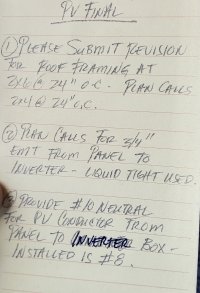 PV FINAL
① PLEASE SUBMIT REVISION
FOR ROOF FRAMING AT
2X6 @ 24" O.C. - PLAN CALLS
2X4 @ 24" O.C.
② PLAN CALLS FOR 3/4"
EMT FROM PANEL TO
INVERTER - LIQUID TIGHT USED.
③ PROVIDE #10 NEUTRAL
FOR PV CONDUCTOR FROM
PANEL TO INVERTER BOX -
INSTALLED IS #8.